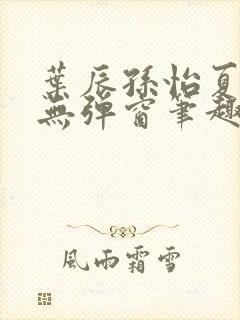 葉辰孫怡夏
無彈窗筆趣
風雨霜雪